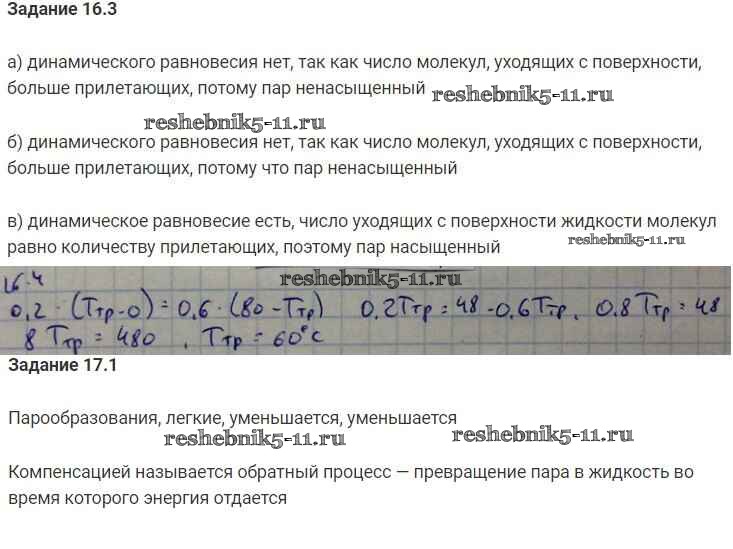 Задание 16.3
а) динамического равновесия нет, так как число молекул, уходящих с поверхности,
больше прилетающих, потому пар ненасыщенный reshebnik5-11.ru
reshebnik5-11.ru
б) динамического равновесия нет, так как число молекул, уходящих с поверхности,
больше прилетающих, потому что пар ненасыщенный
в) динамическое равновесие есть, число уходящих с поверхности жидкости молекул
равно количеству прилетающих, поэтому пар насыщенный reshebnik5-11.ru
16.4 reshebnik5-11.ru
0,2 · (Tтр - 0) = 0,6 · (80 - Tтр) 0.2Tтр = 48 - 0.6Tтр, 0.8Tтр = 48
8 Tтр = 480, Tтр = 60°C
Задание 17.1
Парообразования, легкие, уменьшается, уменьшается
reshebnik5-11.ru reshebnik5-11.ru
Компенсацией называется обратный процесс — превращение пара в жидкость во
время которого энергия отдается